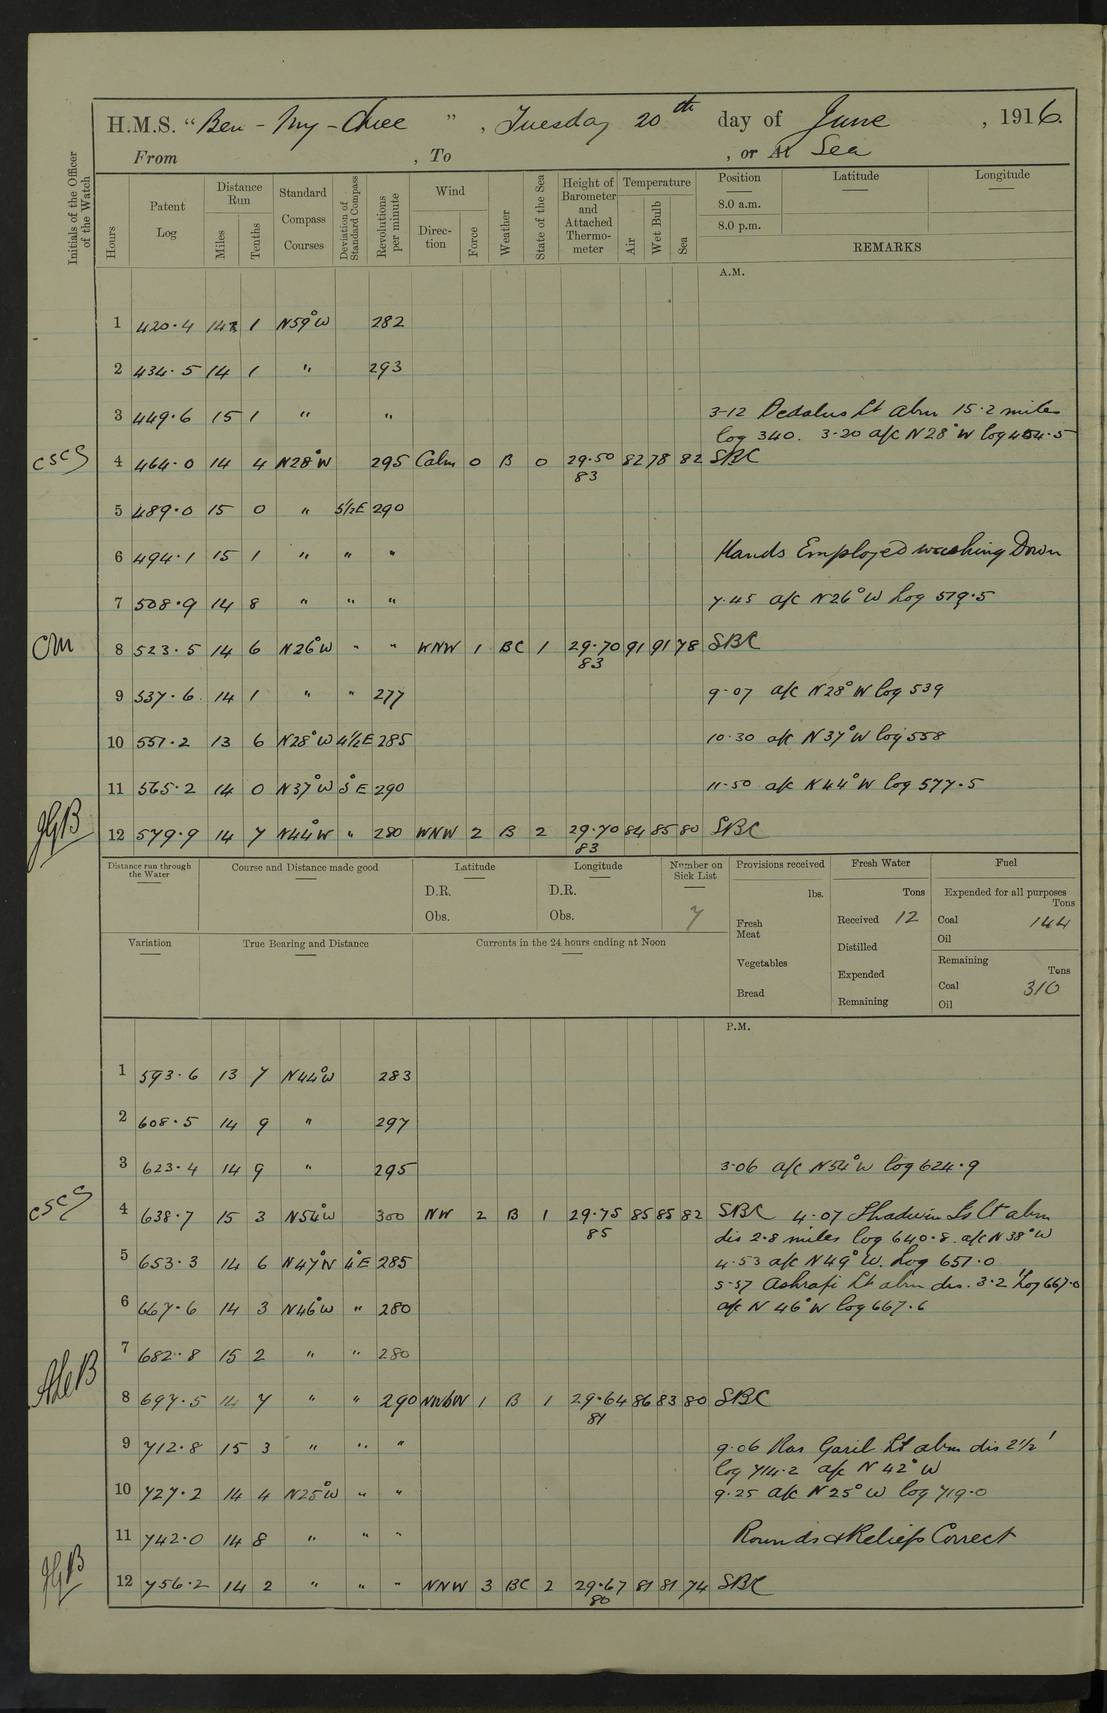 H.M.S. "Ben-My-Chree", Tuesday 20th day of June, 1916.
From , To , or At Sea
Initials of the Officer of the Watch
Hours
Patent Log
Distance Run
Miles
Tenths
Standard Compass Courses
Deviation of Standard Compass
Revolutions per minute
Wind
Direction
Force
Weather
State of the Sea
Height of Barometer and Attached Thermometer
Temperature
Air
Wet Bulb
Sea
Position
8.0 a.m.
8.0 p.m.
Latitude
Longitude
REMARKS
A.M.
1 420.4 14 1 N59°W 282
2 434.5 14 1 " 293
3 449.6 15 1 " " 3-12 Dedalus Lt abm 15.2 miles
log 340. 3-20 a/c N28°W log 454.5
CSCS 4 464.0 14 4 N28°W 295 Calm 0 B 0 29.50 82 78 82 SBC
83
5 489.0 15 0 " 5½E 290
6 494.1 15 1 " " " Hands Employed washing Down
7 508.9 14 8 " " " 7.45 a/c N26°W Log 519.5
CM 8 523.5 14 6 N26°W " " WNW 1 BC 1 29.70 91 91 78 SBC
83
9 537.6 14 1 " " 277 9-07 a/c N28°W log 539
10 551.2 13 6 N28°W 4½E 285 10-30 a/c N37°W log 558
11 565.2 14 0 N37°W 5°E 290 11-50 a/c N44°W log 577.5
JGB 12 579.9 14 7 N44°W " 280 WNW 2 B 2 29.70 84 85 80 SBC
83
Distance run through the Water
Course and Distance made good
Latitude
D.R.
Obs.
Longitude
D.R.
Obs.
Number on Sick List
7
Provisions received
lbs.
Fresh Meat
Vegetables
Bread
Fresh Water
Tons
Received 12
Distilled
Expended
Remaining
Fuel
Expended for all purposes
Tons
Coal 144
Oil
Remaining
Tons
Coal 310
Oil
Variation
True Bearing and Distance
Currents in the 24 hours ending at Noon
P.M.
1 593.6 13 7 N44°W 283
2 608.5 14 9 " 297
3 623.4 14 9 " 295 3.06 a/c N54°W log 624.9
CSCS 4 638.7 15 3 N54°W 300 NW 2 B 1 29.75 85 85 82 SBC 4-07 Shadwan Is Lt abm
85 dis 2.8 miles log 640.8. a/c N38°W
5 653.3 14 6 N47°W 4°E 285 4-53 a/c N49°W. Log 651.0
5-57 Ashrafi Lt abm dis. 3.2' Log 667.0
6 667.6 14 3 N46°W " 280 a/c N 46°W log 667.6
7 682.8 15 2 " " 280
8 697.5 14 7 " " 290 NWbW 1 B 1 29.64 86 83 80 SBC
81
9 712.8 15 3 " " " 9.06 Ras Garib Lt abm dis 2½'
log 714.2 a/c N 42°W
10 727.2 14 4 N25°W " " 9.25 a/c N25°W log 719.0
11 742.0 14 8 " " " Rounds & Reliefs Correct
JGB 12 756.2 14 2 " " " NNW 3 BC 2 29.67 81 81 74 SBC
80